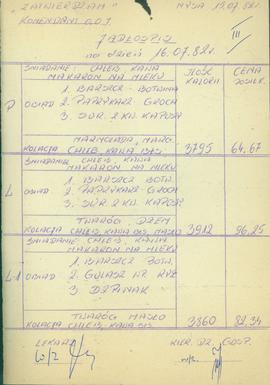 "ZATWIERDZAM" NYSA 15.07.82r.
KOMENDANT O.O.I.
III
JADŁOSPIS
na dzień 16.07.82r.
ŚNIADANIE: CHLEB, KAWA ILOŚĆ CENA
MAKARON NA MLEKU KALORII
1. BARSZCZ - BOTWINA
P OBIAD 2. PAPRYKARZ GROCH
3. SUR. Z KW. KAPUSTY
MARMOLADA, MARG.
KOLACJA CHLEB, KAWA 3795 64,67
ŚNIADANIE CHLEB, KAWA
MAKARON NA MLEKU
1. BARSZCZ BOTW.
L OBIAD 2. PAPRYKARZ GROCH
3. SUR. Z KW. KAPUSTY
TWARÓG, DŻEM
KOLACJA CHLEB, KAWA MASŁO 3912 96,25
ŚNIADANIE CHLEB, KAWA
MAKARON NA MLEKU
1. BARSZCZ BOTW.
L-1 OBIAD 2. GULASZ RYŻ
3. SZPINAK
TWARÓG MASŁO
KOLACJA CHLEB, KAWA 3360 82,34
LEKARZ KIER. DZ. GOSP.
w/z w/z